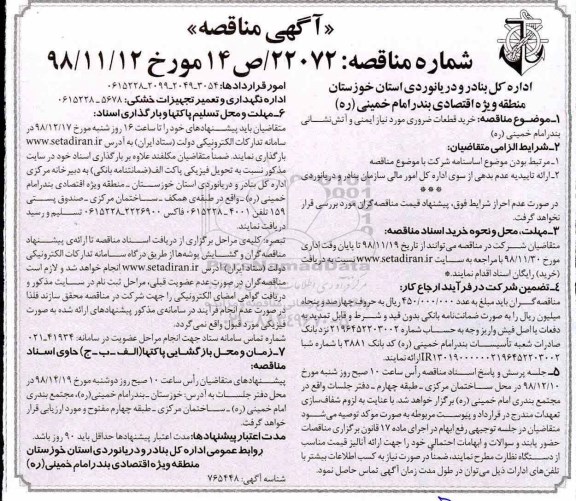 «آگهی مناقصه»
شماره مناقصه: ۲۲۰۷۲/ص۱۴ مورخ ۹۸/۱۱/۱۲
اداره کل بنادر و دریانوردی استان خوزستان
منطقه ویژه اقتصادی بندر امام خمینی (ره)
۱-موضوع مناقصه: خرید قطعات ضروری مورد نیاز ایمنی و آتش‌نشانی
بندر امام خمینی (ره)
۲-شرایط الزامی متقاضیان:
۱-مرتبط بودن موضوع اساسنامه شرکت با موضوع مناقصه
۲-ارائه تاییدیه عدم بدهی از سوی اداره کل امور مالی سازمان بنادر و دریانوردی
***
در صورت عدم احراز شرایط فوق، پیشنهاد قیمت مناقصه‌گران مورد بررسی قرار
نخواهد گرفت.
۳-مهلت، محل و نحوه خرید اسناد مناقصه:
متقاضیان شرکت در مناقصه می‌توانند از تاریخ ۹۸/۱۱/۱۹ تا پایان وقت اداری
مورخ ۹۸/۱۱/۳۰ با مراجعه به سایت www.setadiran.ir نسبت به دریافت
(خرید) رایگان اسناد اقدام نمایند.*
۴-تضمین شرکت در فرآیند ارجاع کار:
مناقصه گران باید مبلغ به عدد ۴۵۰/۰۰۰/۰۰۰ ریال به حروف چهارصد و پنجاه
میلیون ریال را به صورت ضمانت‌نامه بانکی بدون قید و شرط و قابل تمدید به
دفعات یا اصل فیش واریز وجه به حساب شماره ۲۱۹۶۴۵۲۲۰۳۰۰۲ نزد بانک
صادرات شعبه تأسیسات بندر امام خمینی (ره) کد بانک ۳۸۸۱ با شماره شبا
ارائه نمایند.
۵-جلسه پرسش و پاسخ اسناد مناقصه رأس ساعت ۱۰ صبح روز شنبه مورخ
۹۸/۱۲/۱۰ در محل ساختمان مرکزی - طبقه چهارم - دفتر جلسات واقع در
مجتمع بندری امام خمینی (ره) برگزار خواهد شد. با عنایت به لزوم شفاف‌سازی
تعهدات مندرج در قرارداد و پیوست مربوطه به صورت موکد توصیه می‌شود
متقاضیان در جلسه توجیهی رفع ابهام در اجرای ماده ۱۷ قانون برگزاری مناقصات
حضور یابند و سوالات و ابهامات احتمالی خود را جهت ارائه آنالیز قیمت مناسب
از دستگاه نظارت مطرح نمایند، ضمناً در صورت نیاز به کسب اطلاعات بیشتر با
تلفن‌های ادارات ذیل می‌توان در طول مدت زمان آگهی تماس حاصل نمود.
امور قراردادها: ۳۰۵۴-۲۰۴۹-۲۰۹۹-۰۶۱۵۲۲۸
اداره نگهداری و تعمیر تجهیزات خشکی: ۵۶۷۸-۰۶۱۵۲۲۸
۶-مهلت و محل تسلیم پاکتها و بارگذاری اسناد:
متقاضیان باید پیشنهادهای خود را تا ساعت ۱۶ روز شنبه مورخ ۹۸/۱۲/۱۷ در
سامانه تدارکات الکترونیکی دولت (ستاد ایران) به آدرس www.setadiran.ir
بارگذاری نمایند. ضمناً متقاضیان مکلفند علاوه بر بارگذاری اسناد خود در سایت
مذکور نسبت به تحویل فیزیکی پاکت الف (ضمانتنامه بانکی) به دبیرخانه مرکزی
اداره کل بنادر و دریانوردی استان خوزستان - منطقه ویژه اقتصادی بندر امام
خمینی (ره) - واقع در بندر امام خمینی - ساختمان مرکزی - صندوق پستی
۱۵۹ تلفن ۴۰۰۱-۰۶۱۵۲۲۸ فاکس ۰۶۱۵۲۲۲۶۹۰۰ تسلیم و رسید
دریافت نمایند.
تبصره: کلیه‌ی مراحل برگزاری از دریافت اسناد مناقصه تا ارائه‌ی پیشنهاد
مناقصه‌گران و گشایش پوشه‌ها از طریق درگاه سامانه تدارکات الکترونیکی
دولت (ستاد ایران) آدرس www.setadiran.ir انجام خواهد شد و لازم است
مناقصه‌گران در صورت عدم عضویت قبلی، مراحل ثبت نام در سایت مذکور و
دریافت گواهی امضای الکترونیکی را جهت شرکت در مناقصه محقق سازند فلذا
در صورت عدم انجام فرآیند در سامانه‌ی مذکور پیشنهادهای ارائه شده به صورت
فیزیکی مورد قبول واقع نمی‌گردد.
شماره تماس سامانه ستاد جهت انجام مراحل عضویت در سامانه: ۴۱۹۳۴-۰۲۱
۷-زمان و محل بازگشایی پاکتها (الف-ب-ج) حاوی اسناد
مناقصه:
پیشنهادهای متقاضیان رأس ساعت ۱۰ صبح روز دوشنبه مورخ ۹۸/۱۲/۱۹ در
محل دفتر جلسات به آدرس: خوزستان - بندر امام خمینی (ره)، مجتمع بندری
امام خمینی (ره) - ساختمان مرکزی - طبقه چهارم مفتوح و مورد ارزیابی قرار
خواهد گرفت.
مدت اعتبار پیشنهادها: مدت اعتبار پیشنهادها حداقل باید ۹۰ روز باشد.
روابط عمومی اداره کل بنادر و دریانوردی استان خوزستان
منطقه ویژه اقتصادی بندر امام خمینی (ره)
شناسه آگهی: ۷۶۵۴۴۸